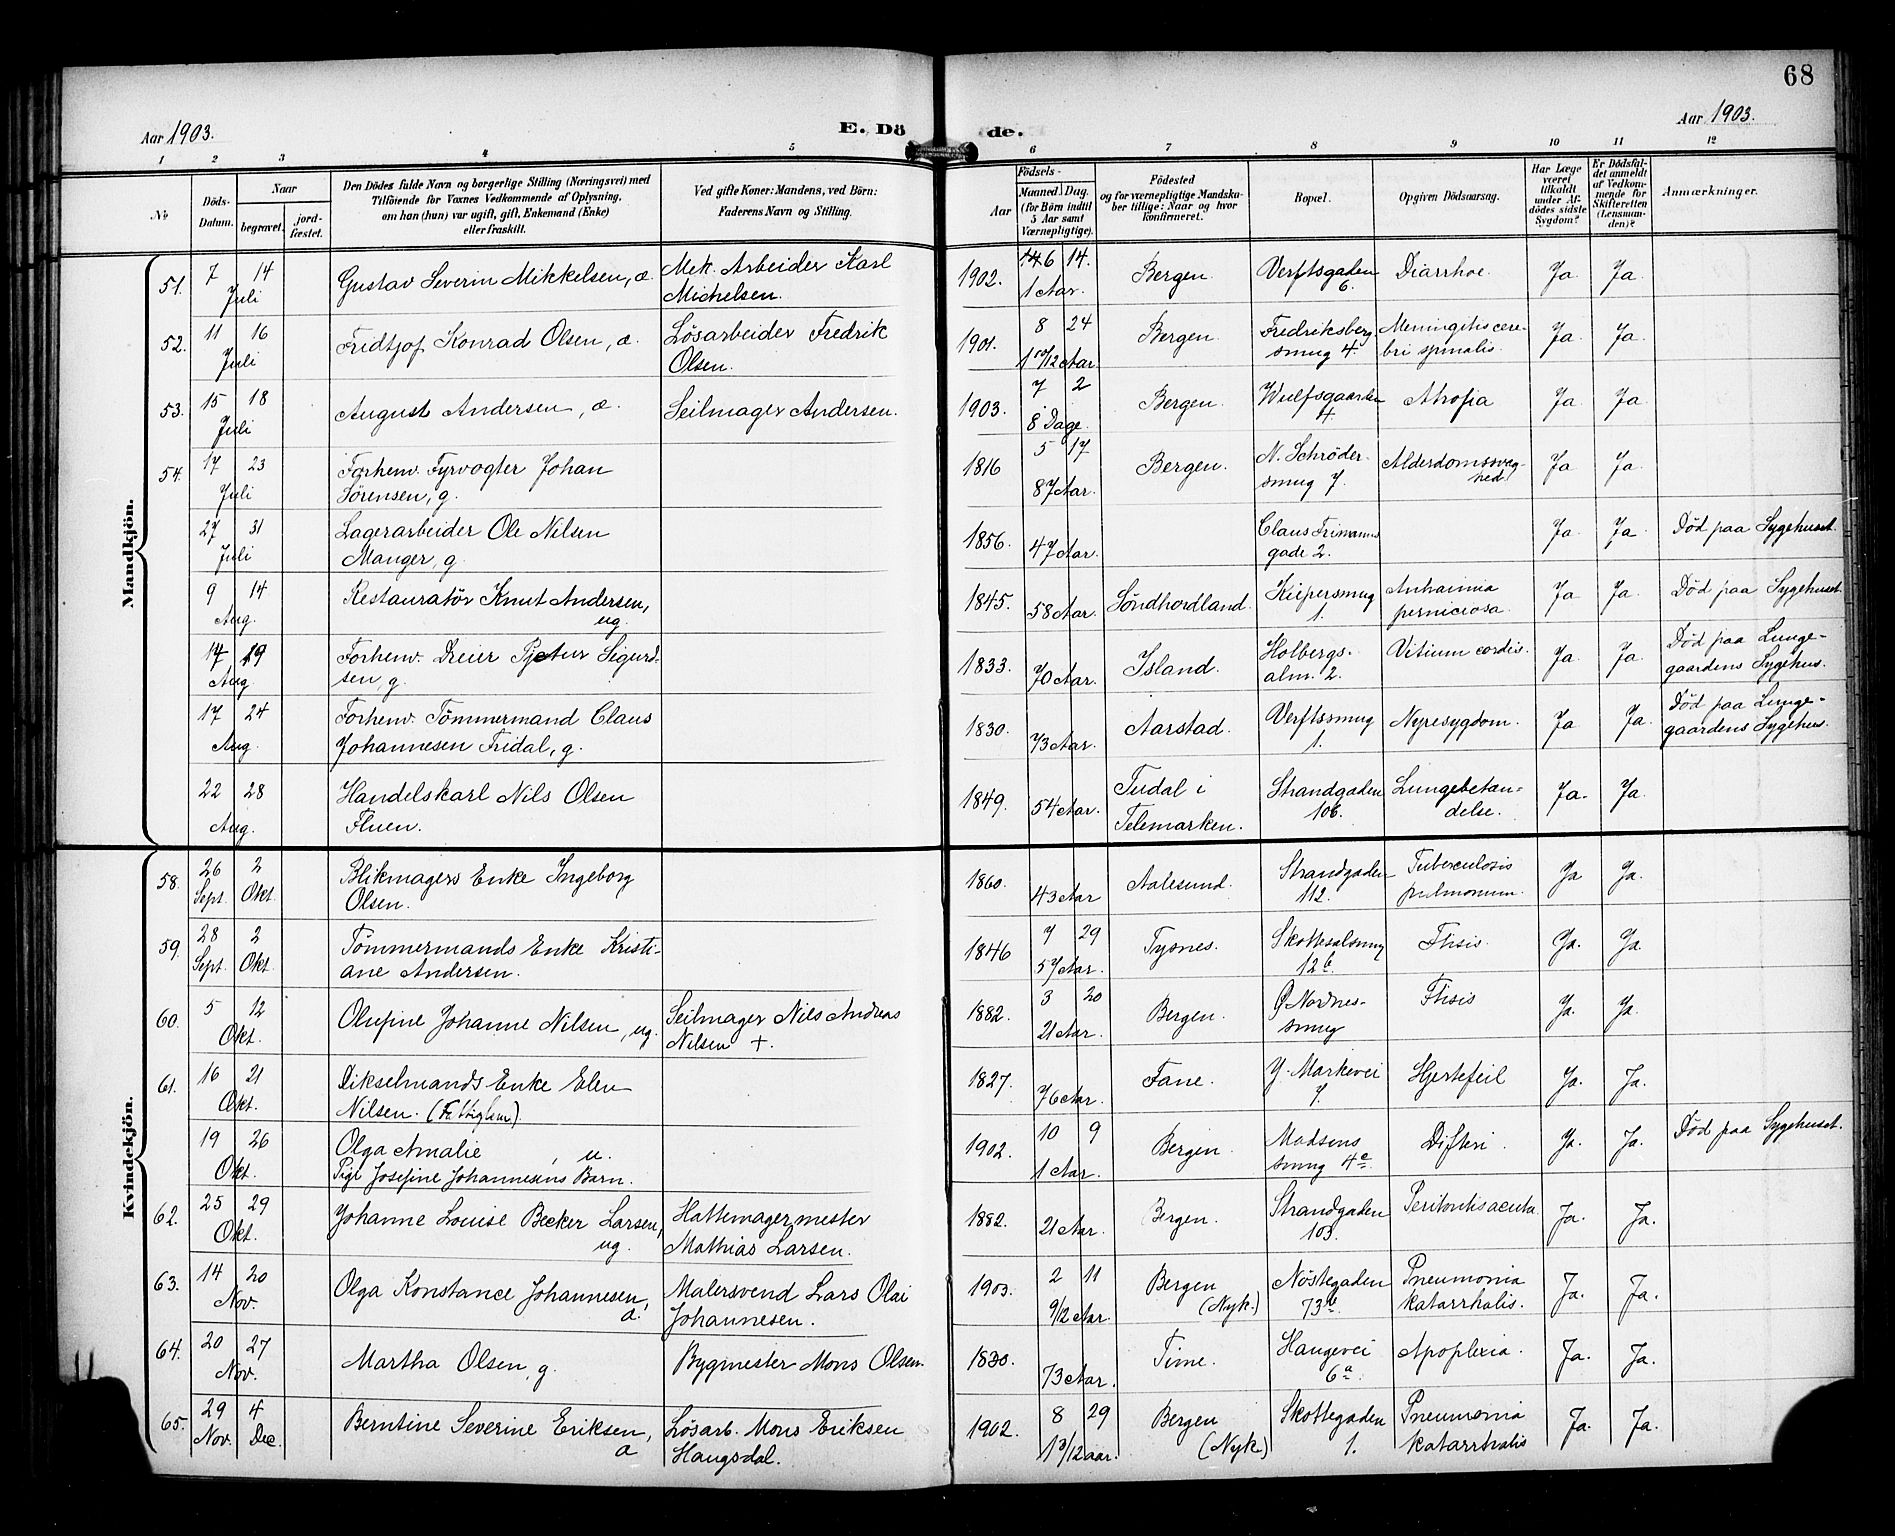 68
Aar 1903.
E. Dö de.
Aar 1903.
1 2 3 4 5 6 7 8 9 10 11 12
No
Döds-Datum.
Naar
begravet.
jord-fæstet.
Den Dödes fulde Navn og borgerlige Stilling (Næringsvei) med
Tilföiende for Voxnes Vedkommende af Oplysning,
om han (hun) var ugift, gift, Enkemand (Enke)
eller fraskilt.
Ved gifte Koner: Mandens, ved Börn:
Faderens Navn og Stilling.
Aar
Födsels-
Maaned. Dag.
(for Börn indtil
5 Aar samt
Værnepligtige).
Födested
og for værnepligtige Mandska-
ber tillige: Naar og hvor
konfirmeret.
Bopæl.
Opgiven Dödsaarsag.
Har Læge
været
tilkaldt
under Af-
dödes sidste
Sygdom?
Er Dödsfal-
det anmeldt
af Vedkom-
mende for
Skifteretten
(Lensman-
den)?
Anmærkninger.
Mandkjön.
51. 7 14 Juli Gustav Severin Mikkelsen, æ. Mek. Arbeider Karl Michelsen. 1902. 6 14. 1 Aar. Bergen Verftsgaden 6. Diarrhoe. Ja Ja.
52. 11 16 Juli Fridtjof Konrad Olsen, æ. Lösarbeider Fredrik Olsen. 1901. 8 24 1 10/12 Aar. Bergen Fredriksberg smug 4. Meningitis cere-bri spinalis. Ja Ja.
53. 15 18 Juli August Andersen, æ. Seilmager Andersen. 1903. 7 2 8 Dage. Bergen. Wulfsgaarden 4. Atrofia Ja Ja
54. 17 23 Juli Forhenv. Fyrvogter Johan Sörensen, g. 1816 5 17 87 Aar. Bergen. N. Schröder-smug 7. Alderdomssvag-hed. Ja Ja.
27 31 Juli Lagerarbeider Ole Nilsen Manger, g. 1856. 47 Aar. Claus Frimanns gade 2. Ja Ja Död paa Sygehuset.
9 14 Aug. Restauratör Knut Andersen, ug. 1845. 58 Aar. Söndhordland. Kipersmug 1. perniciosa. Ja Ja. Död paa Sygehuset.
14 19 Aug. Forhenv. Dreier Pjetur Sigurd-sen, g. 1833. 70 Aar. Island. Holbergs-alm. 2. Vitium cordis. Ja Ja. Död paa Lunge-gaardens Sygehus.
17 24 Aug. Forhenv. Tömmermand Claus Johannesen Fridal, g. 1830. 73 Aar. Aarstad. Verftssmug 1. Nyresygdom. Ja Ja. Död paa Lunge-gaardens Sygehus.
22 28 Aug. Handelskarl Nils Olsen Fluen. 1849. 54 Aar. Tudal i Telemarken. Strandgaden 106. Lungebetæn-delse. Ja. Ja.
Kvindekjön.
58. 26 Sept. 2 Okt. Blikmagers Enke Ingeborg Olsen. 1860. 43 Aar Aalesund. Strandgaden 112. Tuberculosis pulmonum. Ja Ja.
59. 28 Sept. 2 Okt. Tömmermands Enke Kristi-ane Andersen. 1846 7 29 57 Aar. Tysnes. Skottesalsmug 12 b. Ftisis. Ja. Ja
60. 5 12 Okt. Olufine Johanne Nilsen, ug. Seilmager Nils Andreas Nilsen +. 1882. 3 20 21 Aar. Bergen. Nordnes-smug Ftisis Ja. Ja.
61. 16 21 Okt. Dikselmands Enke Elen Nilsen. 1827. 76 Aar. Fane. Y. Markevei 7. Hjertefeil Ja. Ja.
19 26 Okt. Olga Amalie, u. Pige Josefine Johannesens Barn. 1902. 10 9 1 Aar. Bergen. Madsens smug 4 c. Difteri Ja. Ja. Död paa Sygehuset.
62. 25 29 Okt. Johanne Louise Becker Larsen, ug. Hattemagermester Mathias Larsen. 1882. 21 Aar. Bergen. Strandgaden 103. Peritonitis acuta. Ja. Ja.
63. 14 20 Nov. Olga Konstance Johannesen, æ. Malersvend Lars Olai Johannesen. 1903. 2 11 9/12 Aar. Bergen (Nyk.) Nöstegaden 73 b. Pneumonia katarrhalis. Ja. Ja.
64. 20 27 Nov. Martha Olsen, g. Bygmester Mons Olsen. 1830. 73 Aar. Time. Haugevei 6 a. Apoplexia. Ja. Ja.
65. 29 Nov. 4 Dec. Berntine Severine Eriksen, æ Lösarb. Mons Eriksen Haugsdal. 1902. 8 29 1 3/12 aar. Bergen (Nyk.) Skottegaden 1. Pneumonia katarrhalis Ja. Ja.